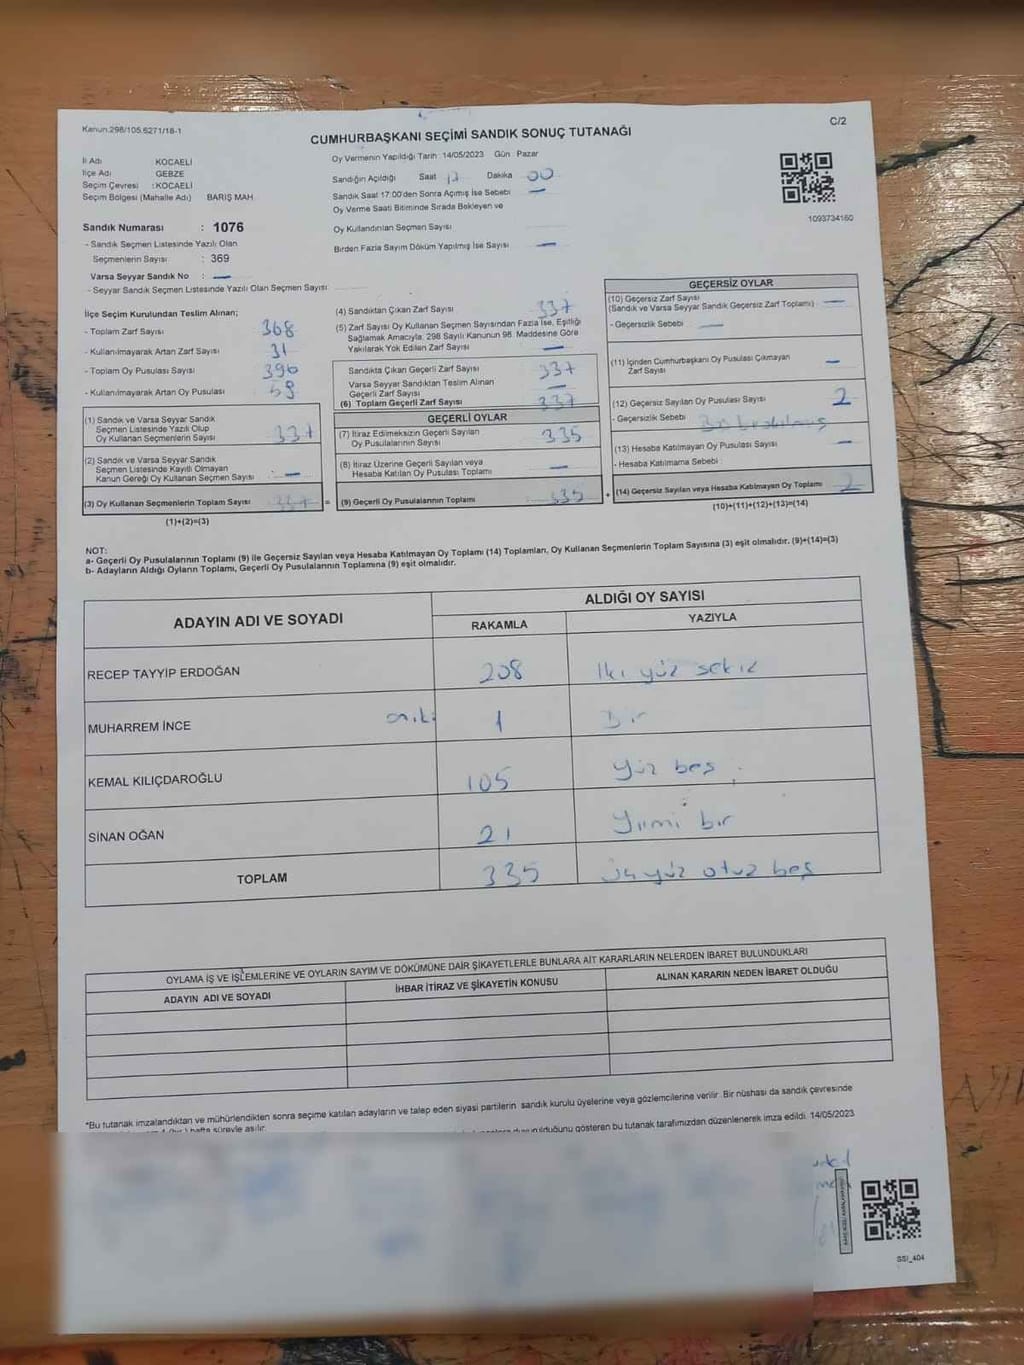 Kanun.298/105.6271/18-1
C/2
CUMHURBAŞKANI SEÇİMİ SANDIK SONUÇ TUTANAĞI
İl Adı KOCAELİ
İlçe Adı GEBZE
Seçim Çevresi : KOCAELİ
Seçim Bölgesi (Mahalle Adı) BARIŞ MAH
Sandık Numarası : 1076
- Sandık Seçmen Listesinde Yazılı Olan
Seçmenlerin Sayısı : 369
Varsa Seyyar Sandık No : —
- Seyyar Sandık Seçmen Listesinde Yazılı Olan Seçmen Sayısı:
Oy Vermenin Yapıldığı Tarih :14/05/2023 Gün : Pazar
Sandığın Açıldığı Saat 17 Dakika 00
Sandık Saat 17:00'den Sonra Açımış İse Sebebi —
Oy Verme Saati Bitiminde Sırada Bekleyen ve
Oy Kullandırılan Seçmen Sayısı
Birden Fazla Sayım Döküm Yapılmış İse Sayısı —
1093734160
İlçe Seçim Kurulundan Teslim Alınan;
- Toplam Zarf Sayısı 368
- Kullanılmayarak Artan Zarf Sayısı 31
- Toplam Oy Pusulası Sayısı 396
- Kullanılmayarak Artan Oy Pusulası 59
(1) Sandık ve Varsa Seyyar Sandık
Seçmen Listesinde Yazılı Olup
Oy Kullanan Seçmenlerin Sayısı 337
(2) Sandık ve Varsa Seyyar Sandık
Seçmen Listesinde Kayıtlı Olmayan
Kanun Gereği Oy Kullanan Seçmen Sayısı : —
(3) Oy Kullanan Seçmenlerin Toplam Sayısı 337 =
(1)+(2)=(3)
(4) Sandıktan Çıkan Zarf Sayısı 337
(5) Zarf Sayısı Oy Kullanan Seçmen Sayısından Fazla İse, Eşitliği
Sağlamak Amacıyla, 298 Sayılı Kanunun 98. Maddesine Göre
Yakılarak Yok Edilen Zarf Sayısı —
Sandıkta Çıkan Geçerli Zarf Sayısı 337
Varsa Seyyar Sandıktan Teslim Alınan
Geçerli Zarf Sayısı —
(6) Toplam Geçerli Zarf Sayısı 337
GEÇERLİ OYLAR
(7) İtiraz Edilmeksizin Geçerli Sayılan
Oy Pusulalarının Sayısı 335
(8) İtiraz Üzerine Geçerli Sayılan veya
Hesaba Katılan Oy Pusulası Toplamı —
(9) Geçerli Oy Pusulalarının Toplamı 335 +
GEÇERSİZ OYLAR
(10) Geçersiz Zarf Sayısı
(Sandık ve Varsa Seyyar Sandık Geçersiz Zarf Toplamı) —
- Geçersizlik Sebebi : —
(11) İçinden Cumhurbaşkanı Oy Pusulası Çıkmayan
Zarf Sayısı —
(12) Geçersiz Sayılan Oy Pusulası Sayısı 2
- Geçersizlik Sebebi
(13) Hesaba Katılmayan Oy Pusulası Sayısı —
- Hesaba Katılmama Sebebi :
(14) Geçersiz Sayılan veya Hesaba Katılmayan Oy Toplamı 2
(10)+(11)+(12)+(13)=(14)
NOT:
a- Geçerli Oy Pusulalarının Toplamı (9) ile Geçersiz Sayılan veya Hesaba Katılmayan Oy Toplamı (14) Toplamları, Oy Kullanan Seçmenlerin Toplam Sayısına (3) eşit olmalıdır. (9)+(14)=(3)
b- Adayların Aldığı Oyların Toplamı, Geçerli Oy Pusulalarının Toplamına (9) eşit olmalıdır.
ADAYIN ADI VE SOYADI ALDIĞI OY SAYISI
RAKAMLA YAZIYLA
RECEP TAYYİP ERDOĞAN 208 İki yüz sekiz
MUHARREM İNCE 1 Bir
KEMAL KILIÇDAROĞLU 105 Yüz beş
SİNAN OĞAN 21 Yirmi bir
TOPLAM 335 üçyüz otuz beş
OYLAMA İŞ VE İŞLEMLERİNE VE OYLARIN SAYIM VE DÖKÜMÜNE DAİR ŞİKAYETLERLE BUNLARA AİT KARARLARIN NELERDEN İBARET BULUNDUKLARI
ADAYIN ADI VE SOYADI İHBAR İTİRAZ VE ŞİKAYETİN KONUSU ALINAN KARARIN NEDEN İBARET OLDUĞU
*Bu tutanak imzalandıktan ve mühürlendikten sonra seçime katılan adayların ve talep eden siyasi partilerin sandık kurulu üyelerine veya gözlemcilerine verilir. Bir nüshası da sandık çevresinde
hafta süreyle asılır. duyurulduğunu gösteren bu tutanak tarafımızdan düzenlenerek imza edildi. 14/05/2023
SSI_404